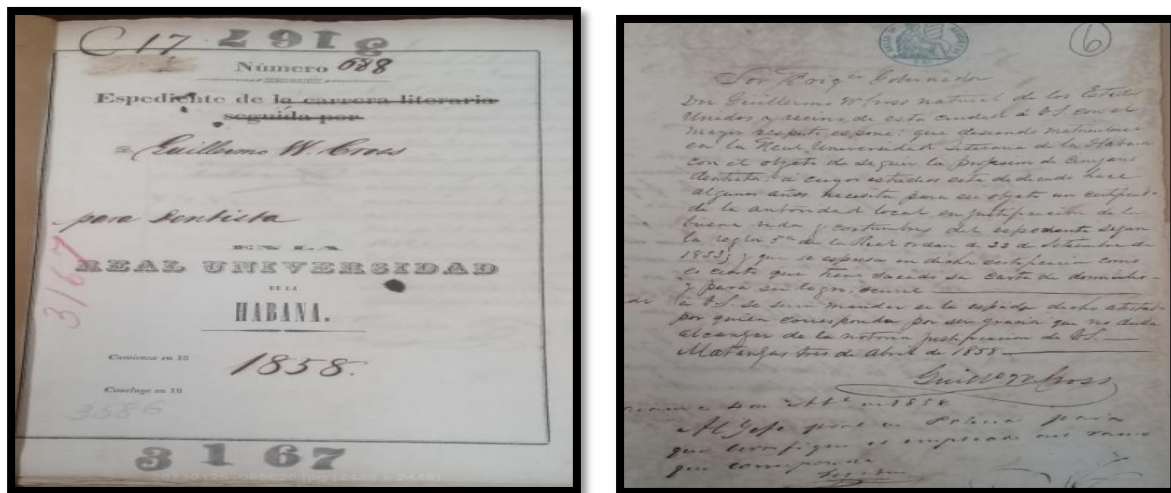 C 17 3167
Número 688
Espediente de la carrera literaria
seguida por
a Guillermo W. Cross
para dentista
EN LA
REAL UNIVERSIDAD
DE LA
HABANA.
Comienza en 18
1858.
Concluye en 18
3586
3167
3167
6
Sor Brig.er Gobernador
Don Guillermo W Cross natural de los Estados
Unidos y vecino de esta ciudad á VS. con el
mayor respeto espone: que deseando matricularse
en la Real Universidad Literaria de la Habana
con el objeto de seguir la profesion de Cirujano
dentista: á cuyos estudios está dedicado hace
algunos años necesita para su objeto un certificado
de la autoridad local en justificacion de la
buena vida y costumbres del esponente segun
la regla 5ª de la Real orden de 22 de Setiembre de
1853; y que se esprese en dicha certificacion como
es cierto que tiene sacada su carta de domicilio
y para su logro, ocurre
á VS. se sirva mandar se le espida dicho atestado
por quien corresponda por ser gracia que no duda
alcanzar de la notoria justificacion de VS.
Matanzas tres de Abril de 1858
Guillo W Cross
1858
Al Gefe de Policia para
que certifique el empleado del ramo
que corresponda